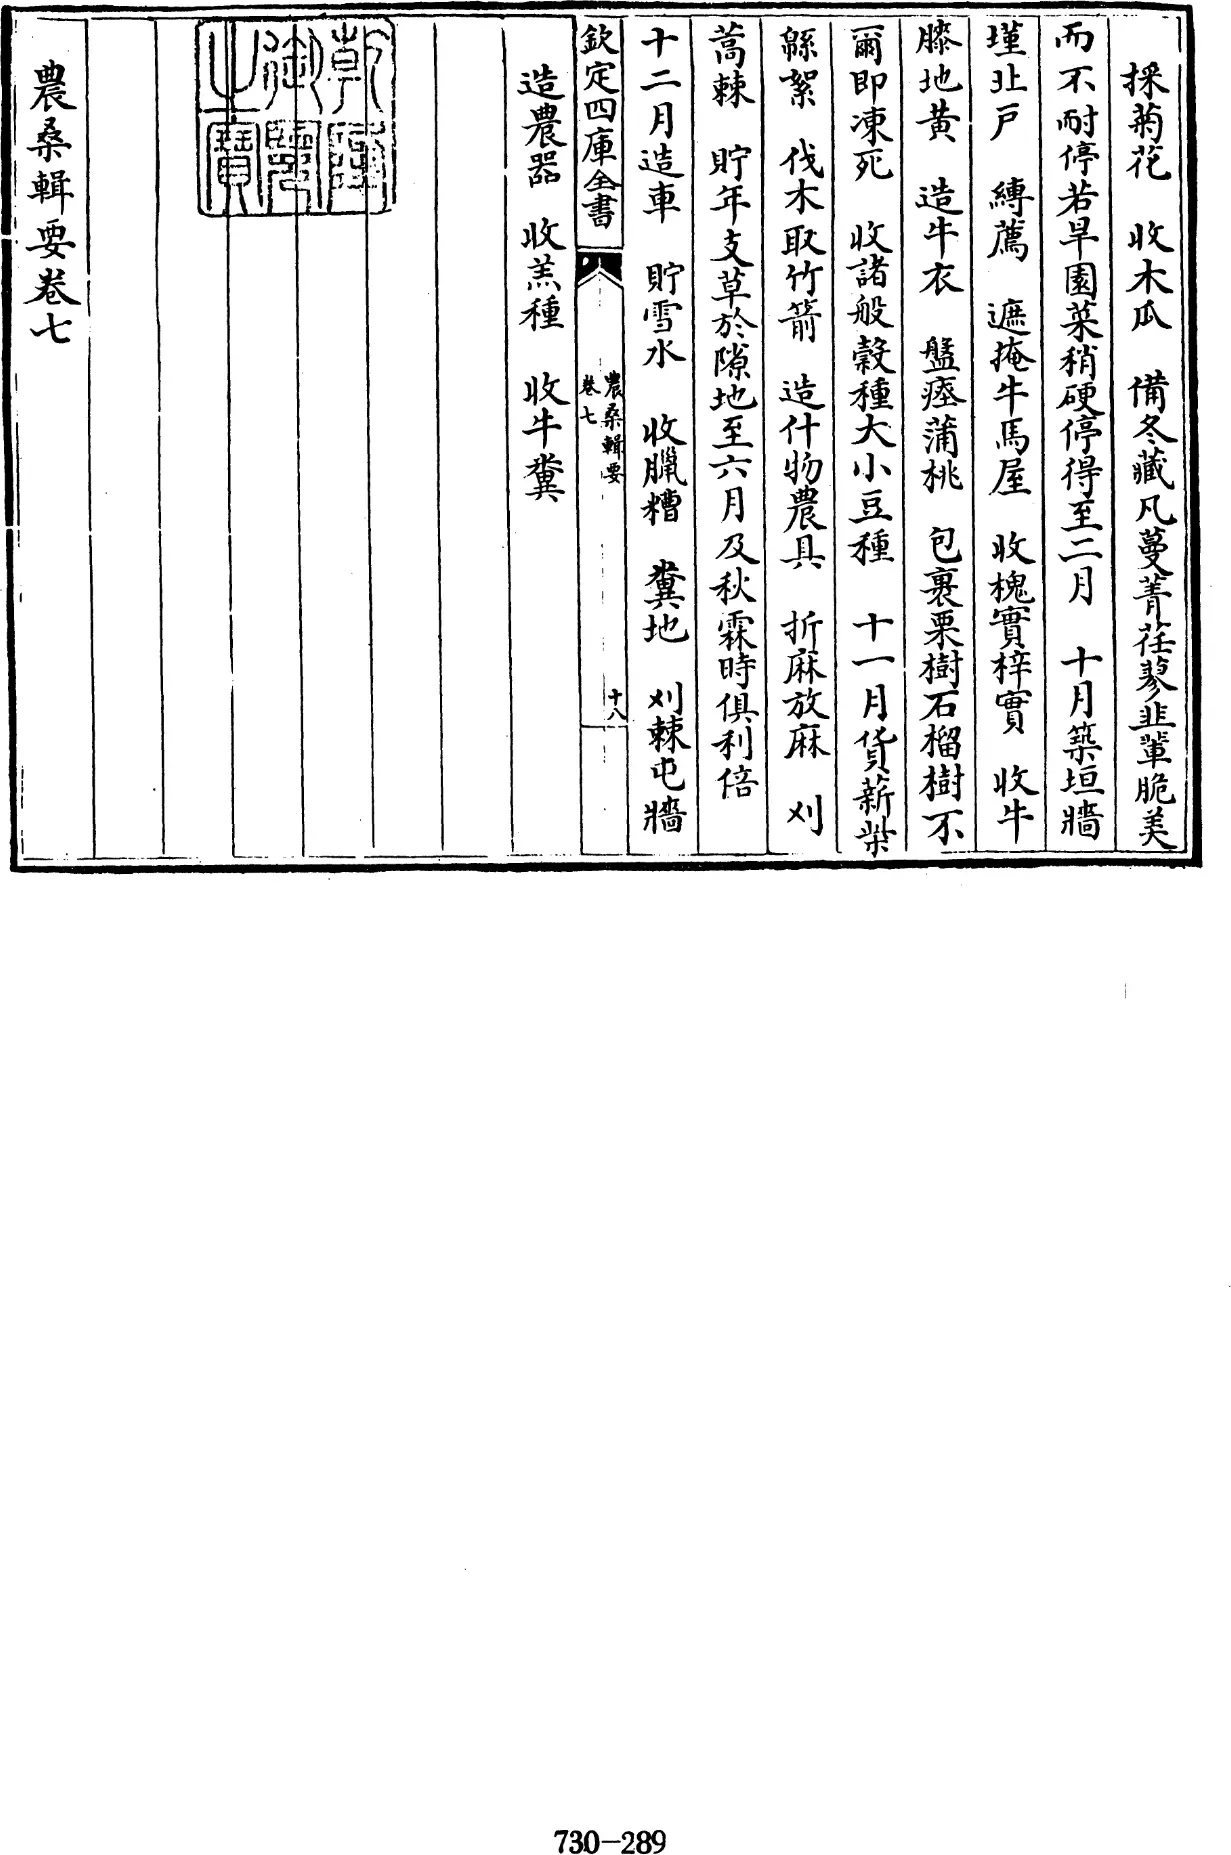 採菊花　收木瓜　備冬藏凡蔓菁荏蓼韭輩脆美
而不耐停若旱園菜稍硬停得至二月　十月築垣牆
墐北戸　縛薦　遮掩牛馬屋　收槐實梓實　收牛
膝地黄　造牛衣　盤瘞蒲桃　包裹栗樹石榴樹不
爾即凍死　收諸般穀種大小豆種　十一月貨薪柴
緜絮　伐木取竹箭　造什物農具　折麻放麻　刈
蒿棘　貯年支草於隙地至六月及秋霖時俱利倍
十二月造車　貯雪水　收臘糟　糞地　刈棘屯牆
欽定四庫全書
農桑輯要
卷七
十八
造農器　收羔種　收牛糞
乾隆御覽之寶
農桑輯要卷七
730-289